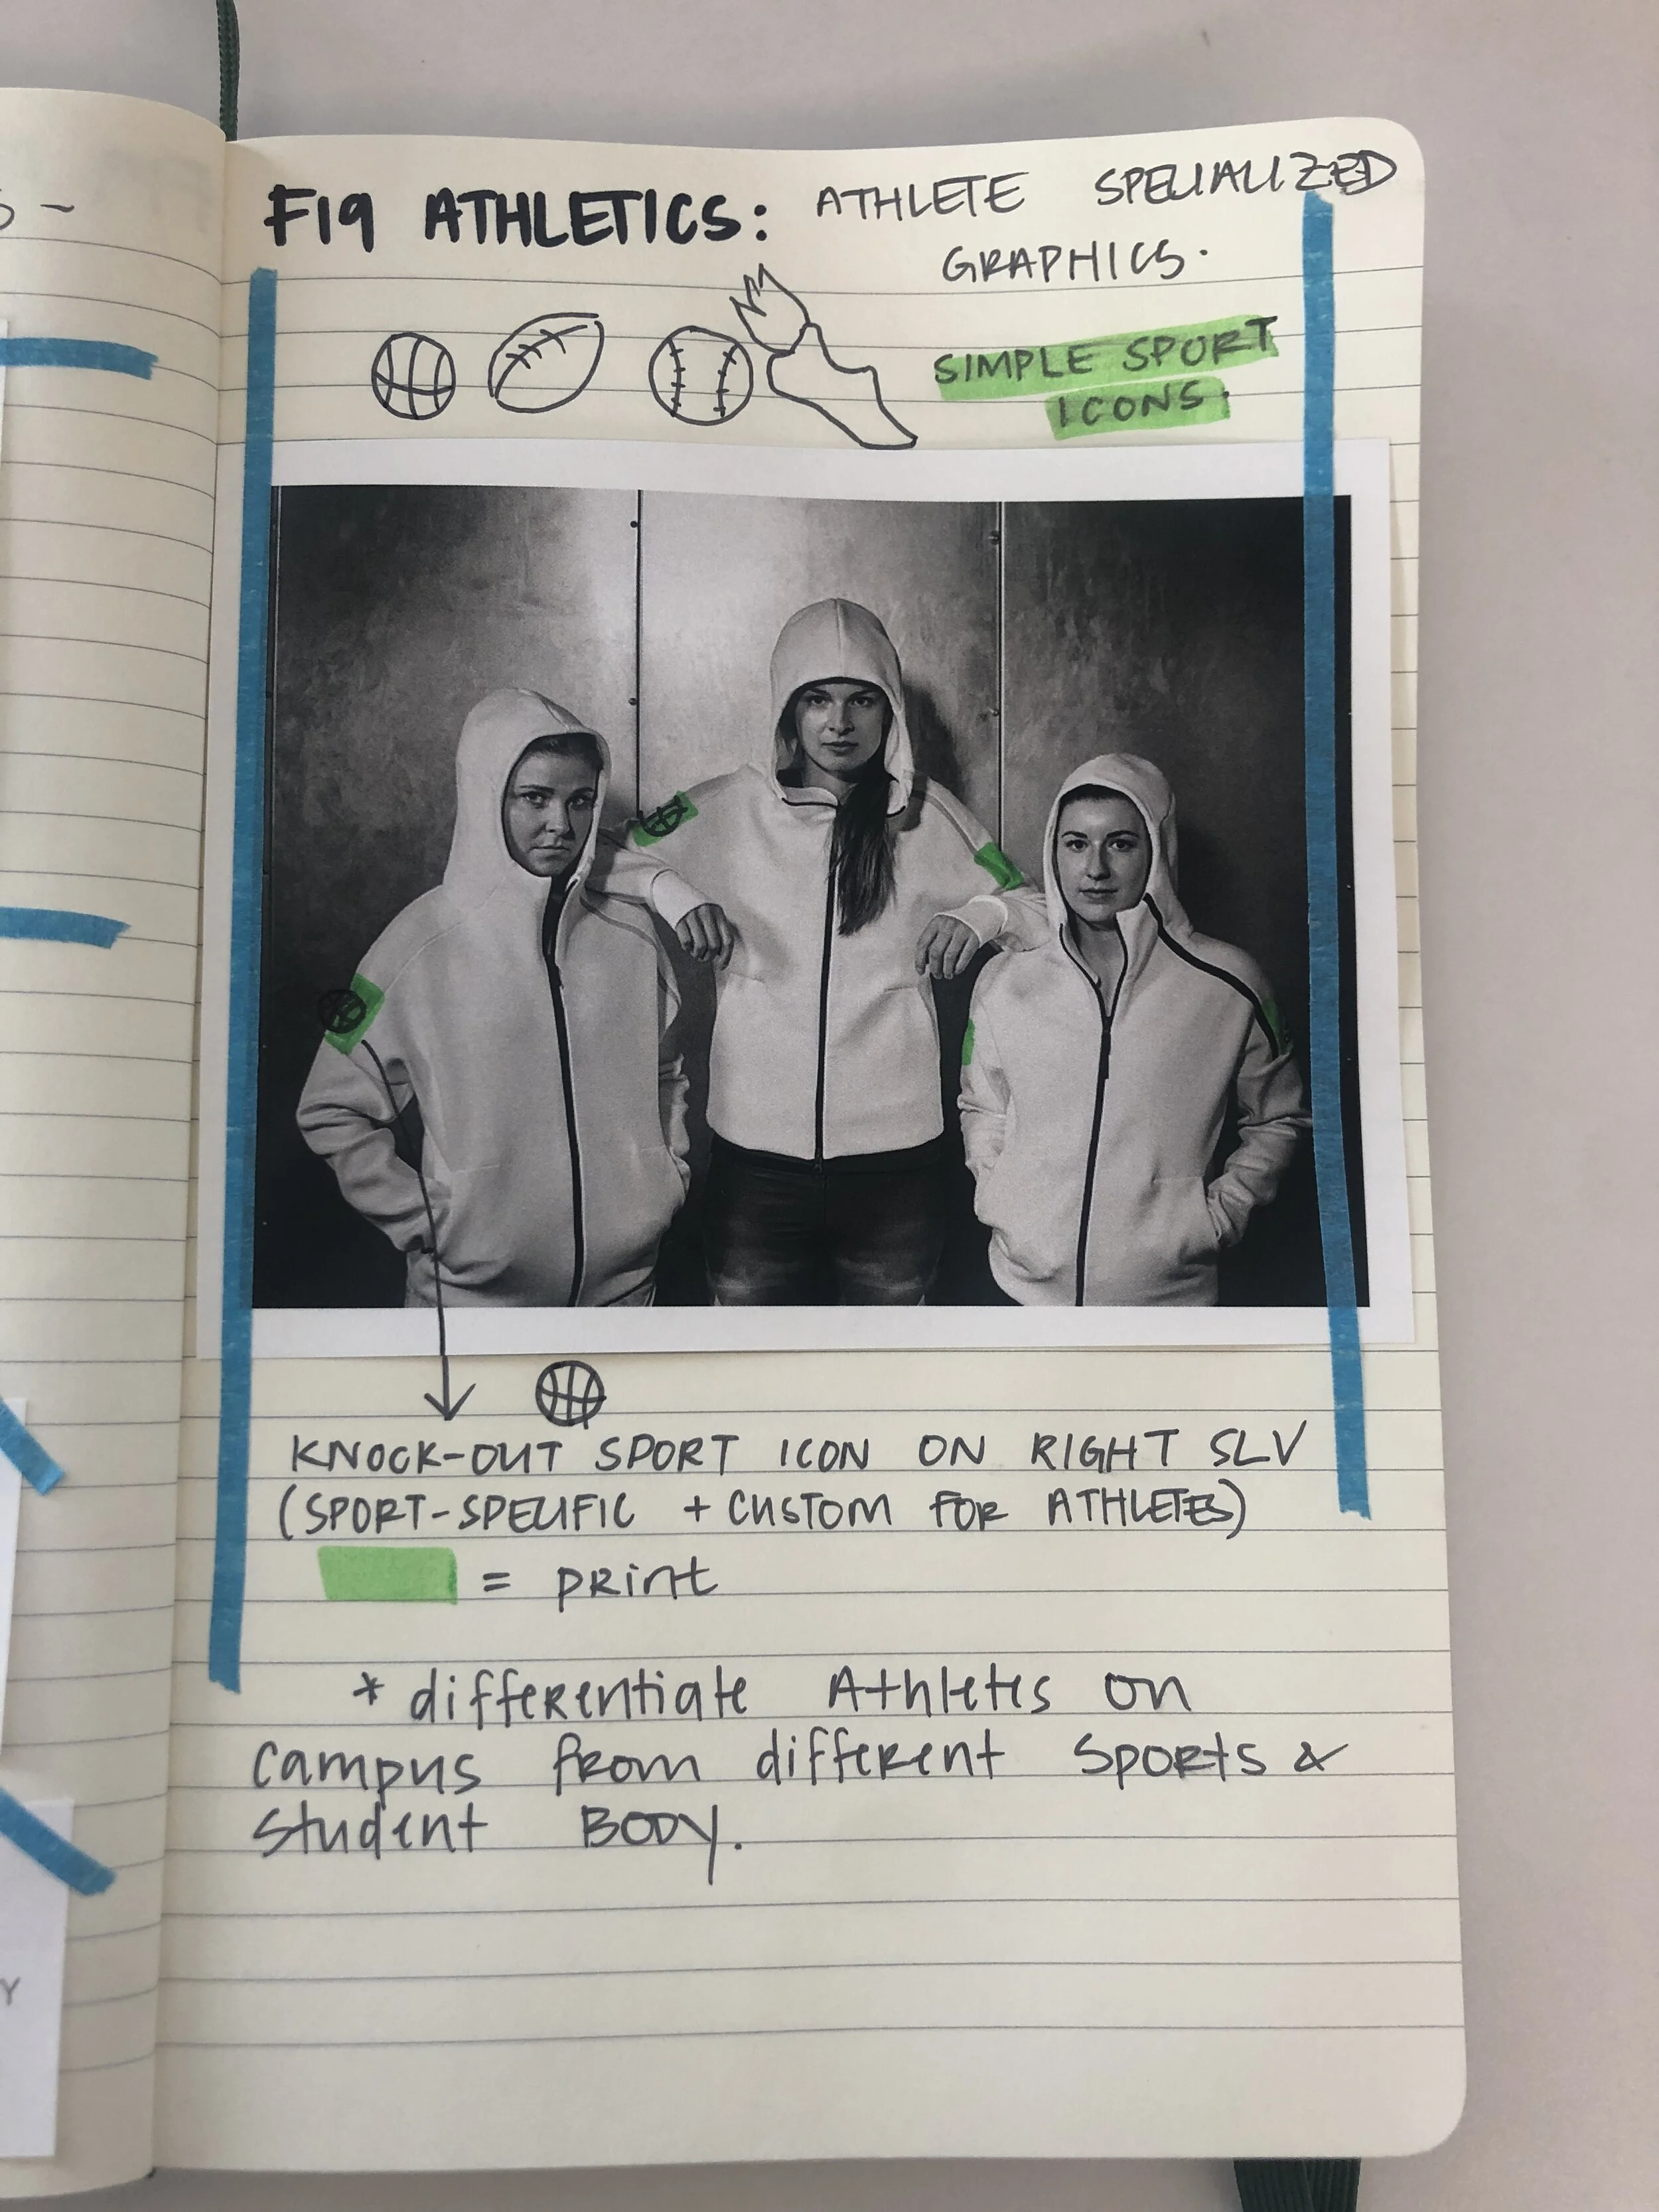 S -
F19 ATHLETICS: ATHLETE SPECIALIZED
GRAPHICS.
SIMPLE SPORT
ICONS.
KNOCK-OUT SPORT ICON ON RIGHT SLV
(SPORT-SPECIFIC + CUSTOM FOR ATHLETES)
= print
* differentiate Athletes on
campus from different Sports &
student BODY.
Y